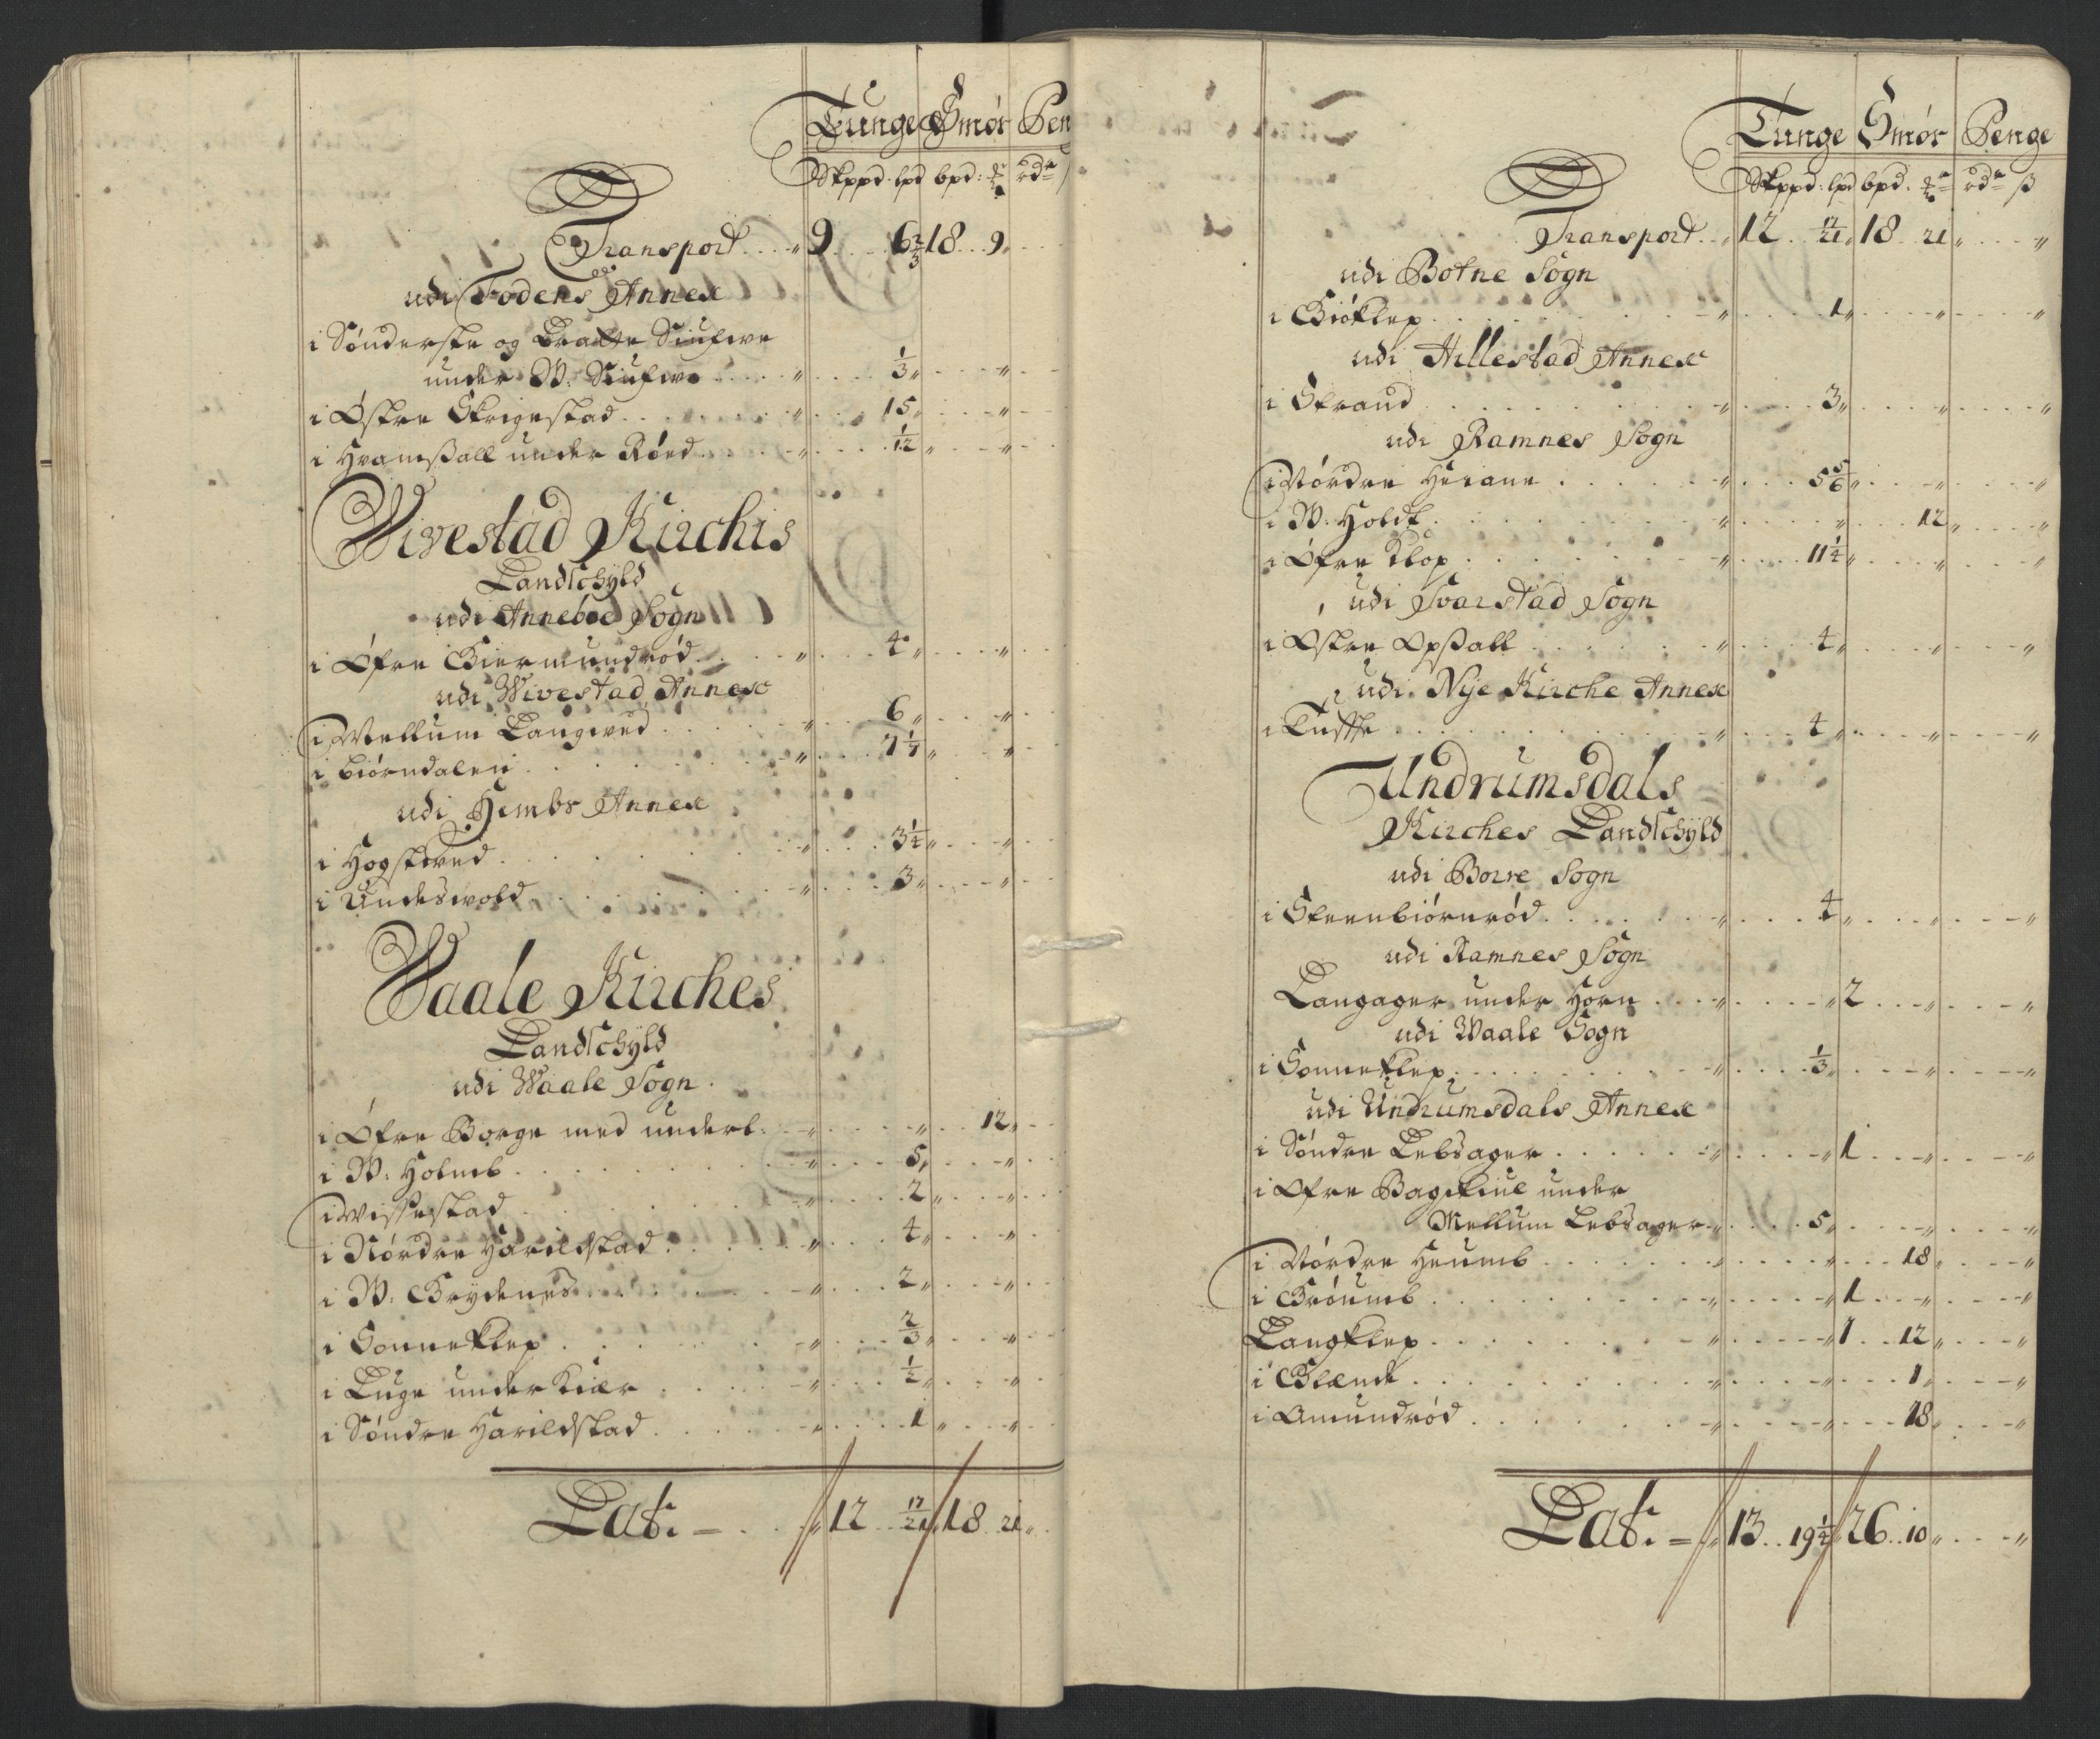 Tunge Smör Pen
Skppd. lpd bpd: ℔ rdr
Transport 9 6 2/3 18 9
udi Fodens Annex
i Sönderske og Bratte Siufwe
under W. Siufwe 1/3
i Östre Skrigestad 15
i Hvamsall under Röed 1/12
Wivestad Kirchis
Landschyld
udi Anneboe Sogn
i Öfre Giermundröd 4
udi Wivestad Annex
i Mellum Langved 6
i biörndalen 7 1/4
udi Hembs Annex
i Hogstved 3 1/4
i Undeswold 3
Waale Kirches
Landschyld
udi Waale Sogn
i Öfre Borge med underl. 12
i W: Holmb 5
i Wissestad 2
i Nördre Harildstad 4
i W. Brydenes 2
i Sonneklep 2/3
i Luge under Kiær 1/2
i Söndre Harildstad 1
Lat. 12 17/21 18 21
Tunge Smör Penge
Skppd. lpd bpd. ℔ rdr ß
Transport 12 17/21 18 21
udi Botne Sogn
i Giöklep 1
udi Hillestad Annex
i Strand 3
udi Ramnes Sogn
i Nördre Heiane 5 5/6
i W. Holdt 12
i Öfre Klop 11 1/4
udi Svarstad Sogn
i Östre Opsall 4
udi Nye Kirche Annex
i Tuffte 4
Undrumsdals
Kirches Landschyld
udi Borre Sogn
i Steenbiörnröd 4
udi Ramnes Sogn
Langager under Horn 2
udi Waale Sogn
i Sonneklep 1/3
udi Undrumsdals Annex
i Söndre Lebsager 1
i Öfre Bagekiul under
Mellum Lebsager 5
i Nördre Heumb 18
i Bröumb 1
Langklep 1 12
i Blænde 1
i Amundröd 18
Lat. 13 19 1/4 26 10